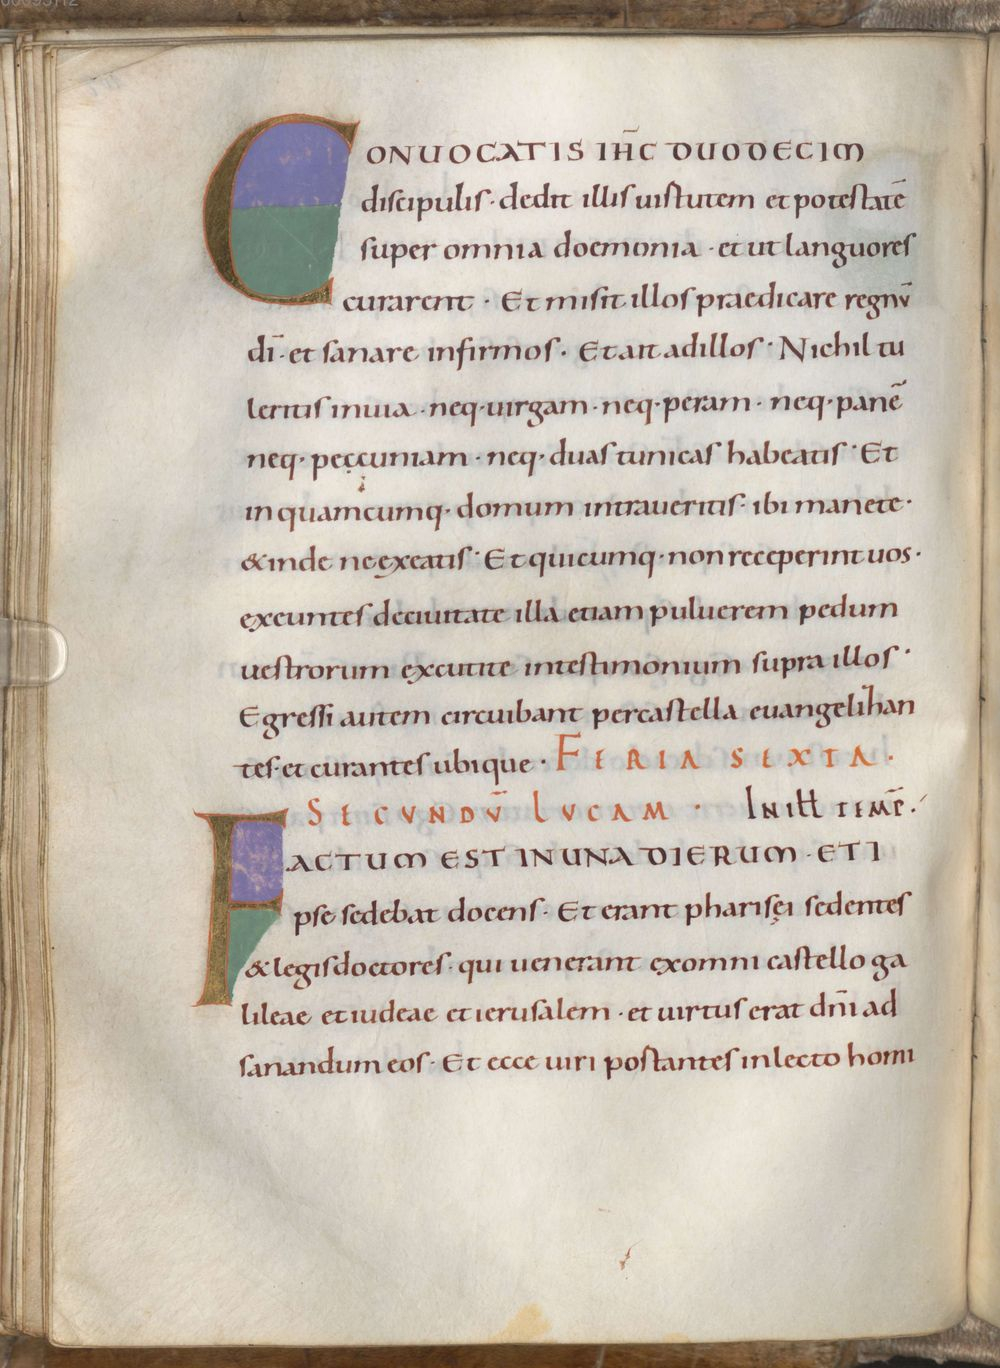 CONUOCATIS IH̅C DUODECIM
discipulis · dedit illis uirtutem et potestatē
super omnia doemonia · et ut languores
curarent · Et misit illos praedicare regnū
dī · et sanare infirmos · Et ait ad illos · Nichil tu
leritis in uia · neq· uirgam · neq· peram · neq· panē
neq· peccuniam · neq· duas tunicas habeatis · Et
in quamcumq· domum intraueritis · ibi manete ·
& inde ne exeatis · Et quicumq· non receperint uos ·
exeuntes de ciuitate illa etiam puluerem pedum
uestrorum excutite in testimonium supra illos ·
Egressi autem circuibant per castella euangelihan
tes · et curantes ubique · FERIA SEXTA ·
SECUNDŪ LUCAM · IN ILL TEMP̅ ·
FACTUM EST IN UNA DIERUM · ET I
pse sedebat docens · Et erant pharisęi sedentes
& legis doctores · qui uenerant ex omni castello ga
lileae et iudeae et ierusalem · et uirtus erat dn̄i ad
sanandum eos · Et ecce uiri postantes in lecto homi